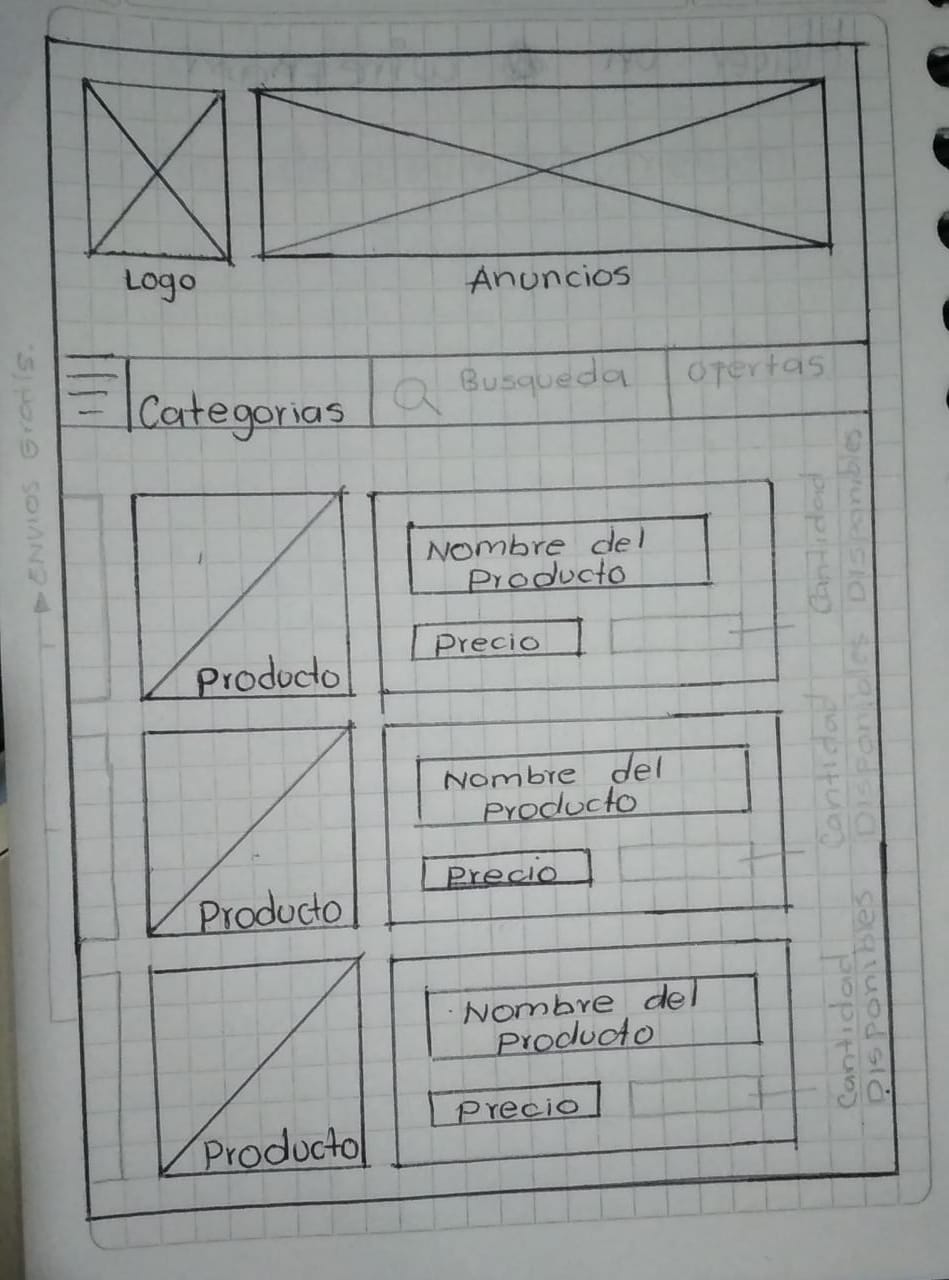 Logo
Anuncios
Categorias
Busqueda
Ofertas
Envios Gratis.
Producto
Nombre del
Producto
Precio
Cantidad
Disponibles
Producto
Nombre del
Producto
Precio
Cantidad
Disponibles
Producto
Nombre del
Producto
Precio
Cantidad
Disponibles